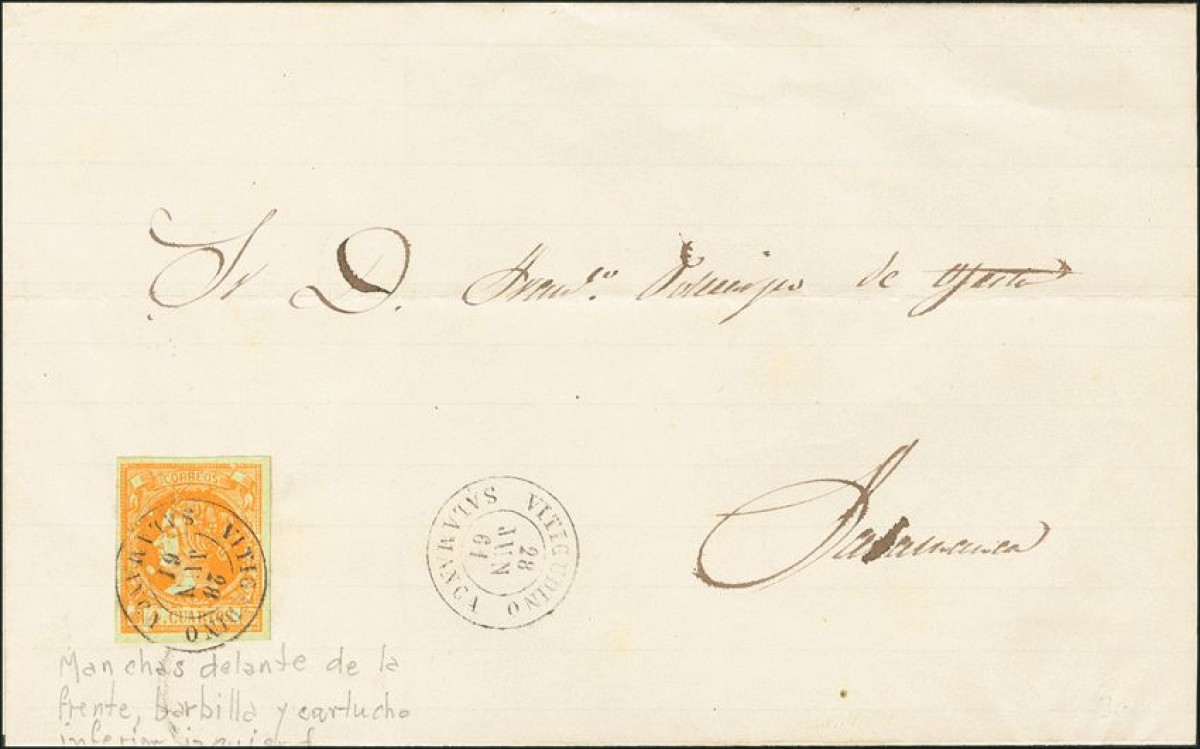 Sr D. Fran.co de
Salamanca
CORREOS
VITIGUDINO
28
JUN
61
SALAMANCA
4 CUARTOS
VITIGUDINO
28
JUN
61
SALAMANCA
Manchas delante de la
frente, barbilla y cartucho
inferior